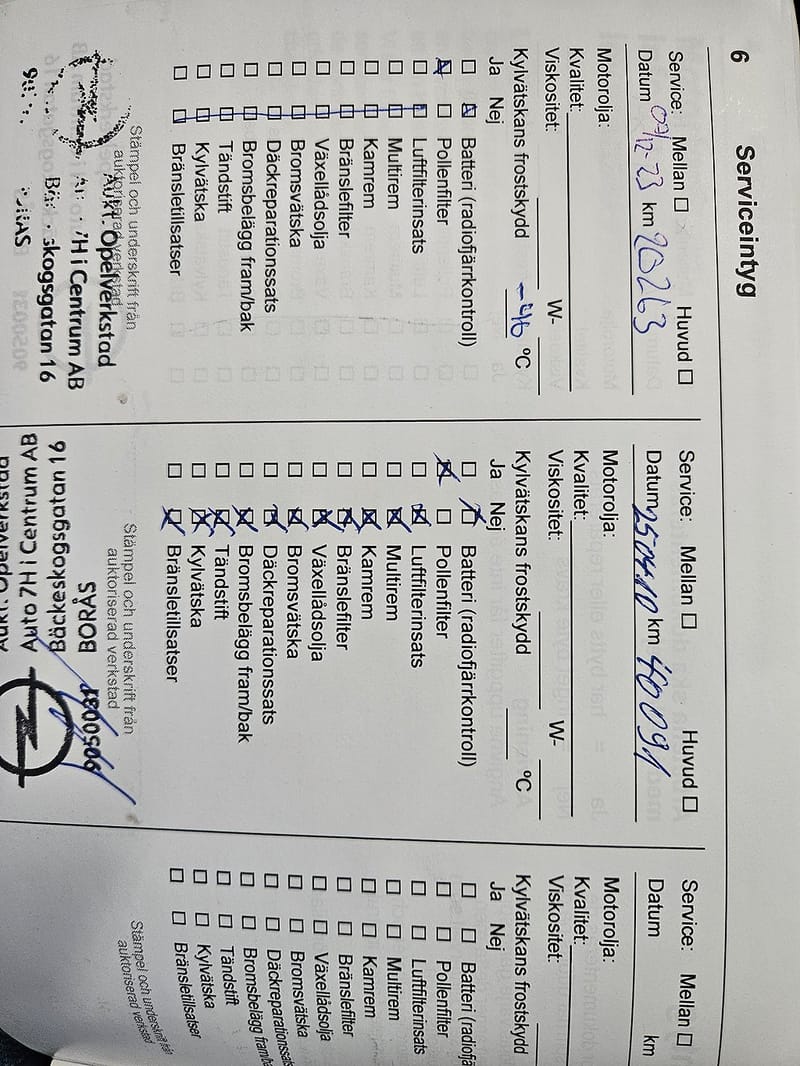 6
Serviceintyg
Service: Mellan ☐ Huvud ☐
Datum 07/12-23 km 20263
Motorolja:
Kvalitet:
Viskositet: W-
Kylvätskans frostskydd -46 °C
Ja Nej
☐ ☒ Batteri (radiofjärrkontroll)
☒ ☐ Pollenfilter
☐ ☒ Luftfilterinsats
☐ ☒ Multirem
☐ ☒ Kamrem
☐ ☒ Bränslefilter
☐ ☒ Växellådsolja
☐ ☒ Bromsvätska
☐ ☒ Däckreparationssats
☐ ☒ Bromsbelägg fram/bak
☐ ☒ Tändstift
☐ ☒ Kylvätska
☐ ☒ Bränsletillsatser
Stämpel och underskrift från
auktoriserad verkstad
Aukt. Opelverkstad
7H i Centrum AB
skogsgatan 16
Service: Mellan ☐ Huvud ☐
Datum 250410 km 40091
Motorolja:
Kvalitet:
Viskositet: W-
Kylvätskans frostskydd °C
Ja Nej
☐ ☒ Batteri (radiofjärrkontroll)
☒ ☐ Pollenfilter
☐ ☒ Luftfilterinsats
☐ ☒ Multirem
☐ ☒ Kamrem
☐ ☒ Bränslefilter
☐ ☒ Växellådsolja
☐ ☒ Bromsvätska
☐ ☒ Däckreparationssats
☐ ☒ Bromsbelägg fram/bak
☐ ☒ Tändstift
☐ ☒ Kylvätska
☐ ☒ Bränsletillsatser
Stämpel och underskrift från
auktoriserad verkstad
9050031
BORÅS
Bäckeskogsgatan 16
Auto 7H i Centrum AB
Aukt. Opelverkstad
Service: Mellan ☐
Datum km
Motorolja:
Kvalitet:
Viskositet:
Kylvätskans frostskydd
Ja Nej
☐ ☐ Batteri (radiofjä
☐ ☐ Pollenfilter
☐ ☐ Luftfilterinsats
☐ ☐ Multirem
☐ ☐ Kamrem
☐ ☐ Bränslefilter
☐ ☐ Växellådsolja
☐ ☐ Bromsvätska
☐ ☐ Däckreparationssats
☐ ☐ Bromsbelägg fram/ba
☐ ☐ Tändstift
☐ ☐ Kylvätska
☐ ☐ Bränsletillsatser
Stämpel och underskrift från
auktoriserad verkstad